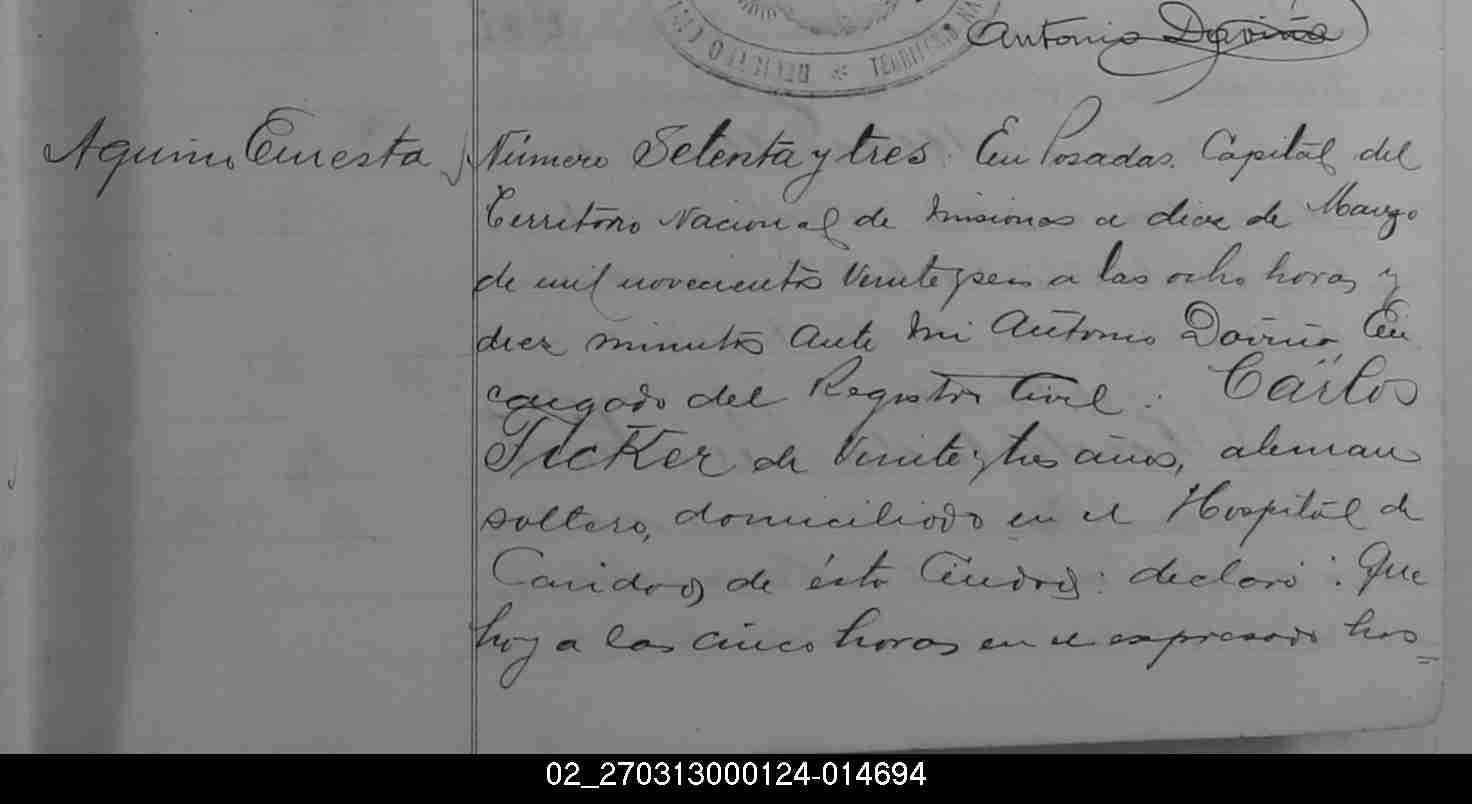 REGISTRO CIVIL * TERRITORIO NA
Antonio Daviña
Aquino Ernesta
Número Setenta y tres. En Posadas. Capital del
Territorio Nacional de Misiones a diez de Marzo
de mil novecientos veinte y seis a las ocho horas y
diez minutos ante mi Antonio Daviña En
cargado del Registro Civil: Carlos
Ticker de veinte y tres años, aleman
soltero, domiciliado en el Hospital de
Caridad de ésta Ciudad: declaró: Que
hoy a las cinco horas en el expresado hos=
02_270313000124-014694